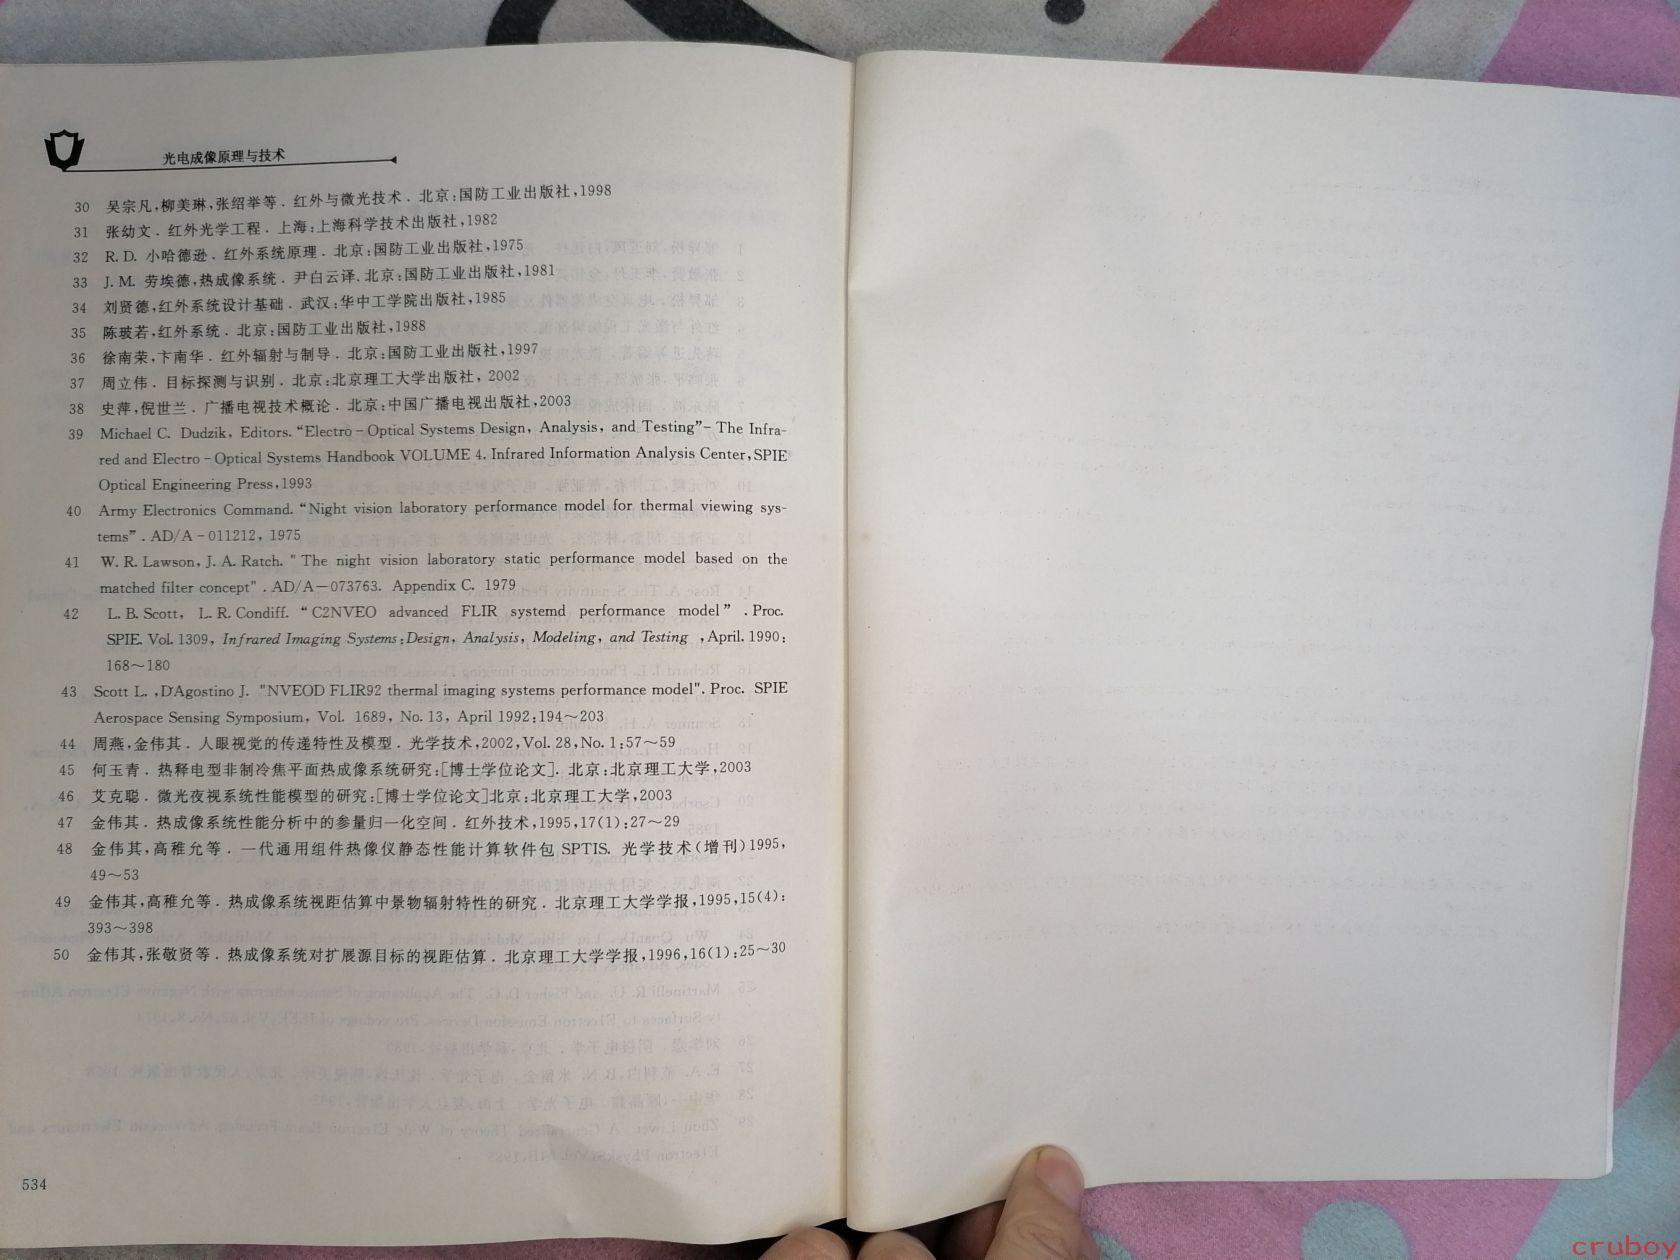 光电成像原理与技术
30 吴宗凡,柳美琳,张绍举等．红外与微光技术．北京:国防工业出版社,1998
31 张幼文．红外光学工程．上海:上海科学技术出版社,1982
32 R.D. 小哈德逊．红外系统原理．北京:国防工业出版社,1975
33 J.M. 劳埃德,热成像系统．尹白云译.北京:国防工业出版社,1981
34 刘贤德,红外系统设计基础．武汉:华中工学院出版社,1985
35 陈玻若,红外系统．北京:国防工业出版社,1988
36 徐南荣,卞南华．红外辐射与制导．北京:国防工业出版社,1997
37 周立伟．目标探测与识别．北京:北京理工大学出版社, 2002
38 史萍,倪世兰．广播电视技术概论．北京:中国广播电视出版社,2003
39 Michael C. Dudzik, Editors. “Electro－Optical Systems Design, Analysis, and Testing”- The Infra-
red and Electro－Optical Systems Handbook VOLUME 4. Infrared Information Analysis Center, SPIE
Optical Engineering Press,1993
40 Army Electronics Command. “Night vision laboratory performance model for thermal viewing sys-
tems”. AD/A－011212, 1975
41 W. R. Lawson, J. A. Ratch. " The night vision laboratory static performance model based on the
matched filter concept" . AD/A—073763. Appendix C. 1979
42 L. B. Scott, L. R. Condiff. “ C2NVEO advanced FLIR systemd performance model” . Proc.
SPIE. Vol. 1309, Infrared Imaging Systems:Design, Analysis, Modeling, and Testing ,April. 1990:
168～180
43 Scott L. ,D'Agostino J. "NVEOD FLIR92 thermal imaging systems performance model". Proc. SPIE
Aerospace Sensing Symposium, Vol. 1689, No. 13, April 1992:194～203
44 周燕,金伟其．人眼视觉的传递特性及模型．光学技术,2002,Vol. 28,No. 1:57～59
45 何玉青．热释电型非制冷焦平面热成像系统研究:[博士学位论文]. 北京:北京理工大学,2003
46 艾克聪．微光夜视系统性能模型的研究:[博士学位论文]北京:北京理工大学,2003
47 金伟其．热成像系统性能分析中的参量归一化空间．红外技术,1995,17(1):27～29
48 金伟其,高稚允等．一代通用组件热像仪静态性能计算软件包 SPTIS. 光学技术(增刊)1995,
49～53
49 金伟其,高稚允等．热成像系统视距估算中景物辐射特性的研究．北京理工大学学报,1995,15(4):
393～398
50 金伟其,张敬贤等．热成像系统对扩展源目标的视距估算．北京理工大学学报,1996,16(1):25～30
534
cruboy